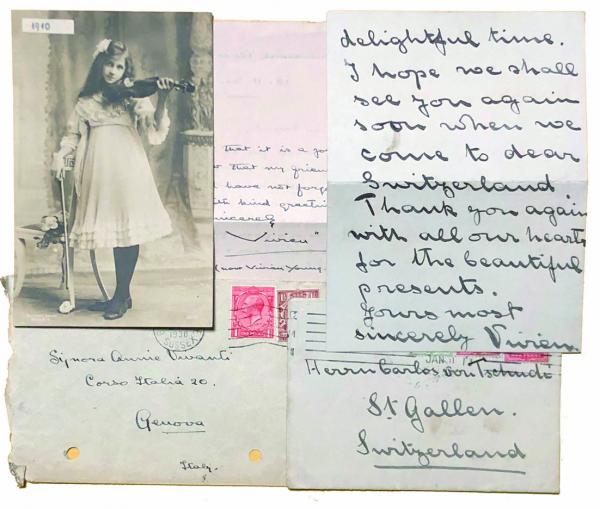 1910
that it is a
that my
have not
kind
sincerely
"Vivien"
(now Vivien Young
delightful time.
I hope we shall
see you again
soon when we
come to dear
Switzerland
Thank you again
with all our heart
for the beautiful
presents.
Yours most
sincerely Vivien
SUSSEX
Signora Annie Vivanti
Corso Italia 20.
Genova
Italy.
JAN
Herrn Carlos von Tschudi
St Gallen.
Switzerland